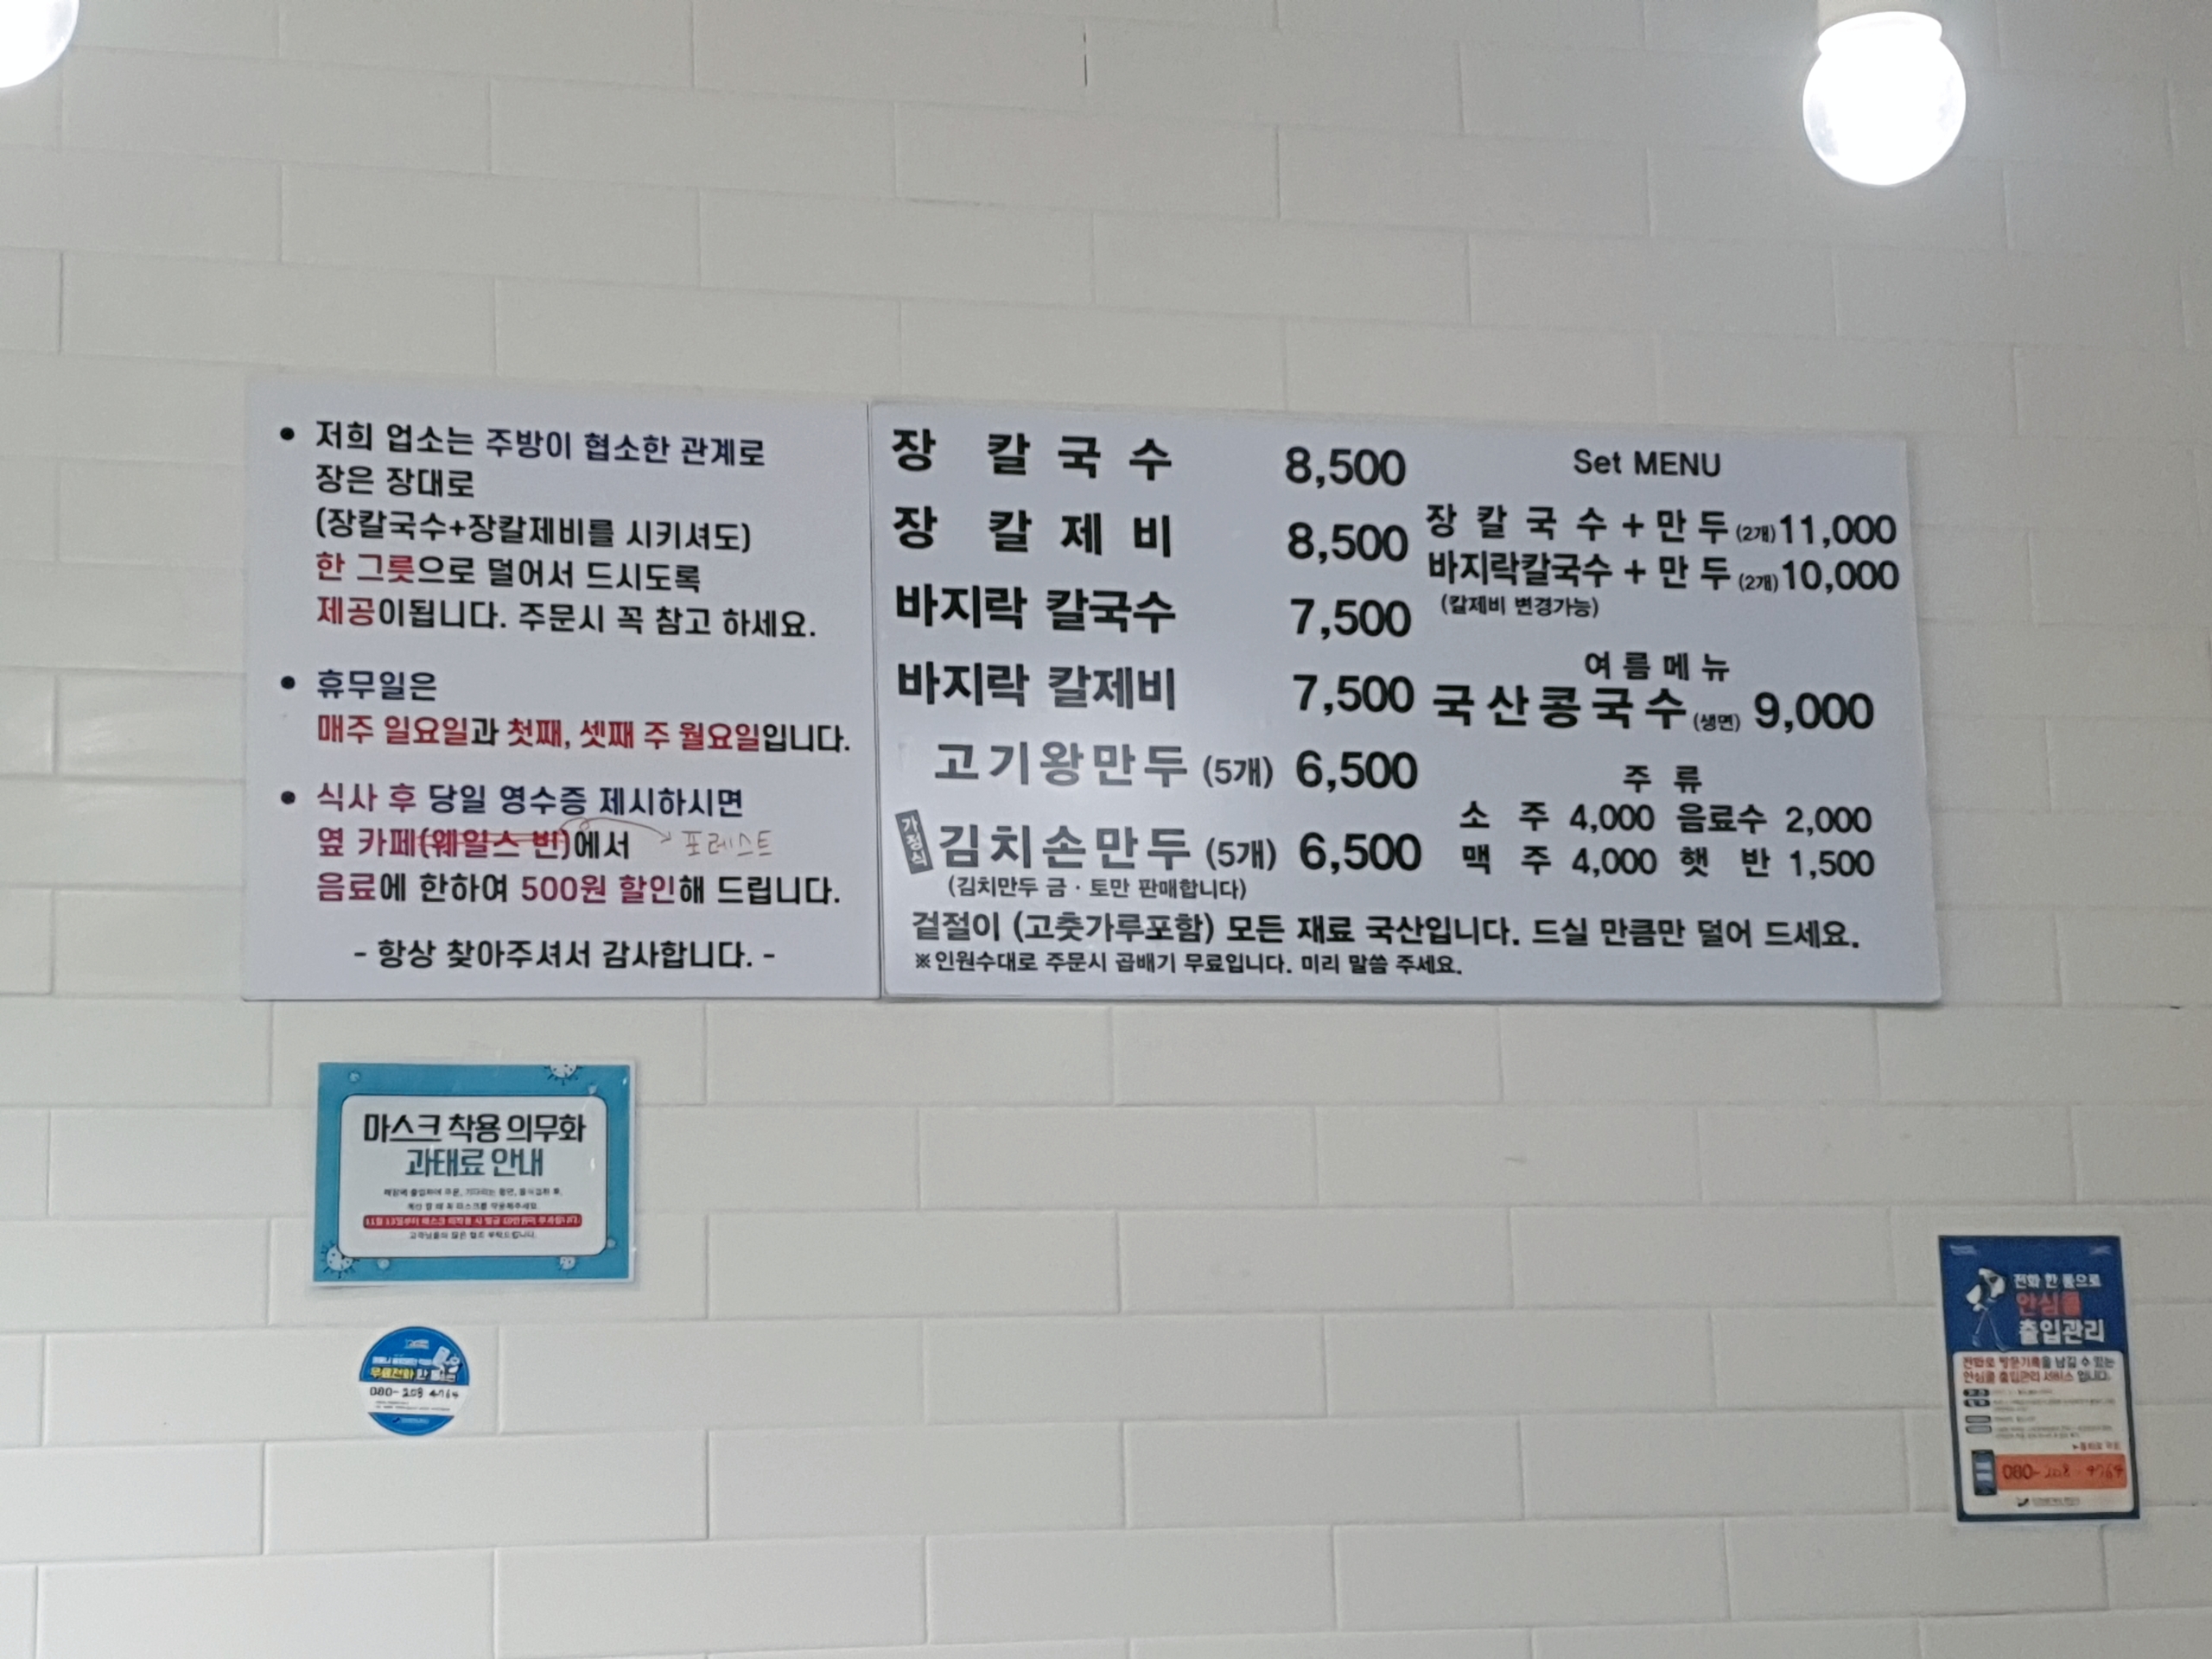 • 저희 업소는 주방이 협소한 관계로
장은 장대로
(장칼국수+장칼제비를 시키셔도)
한 그릇으로 덜어서 드시도록
제공이됩니다. 주문시 꼭 참고 하세요.
• 휴무일은
매주 일요일과 첫째, 셋째 주 월요일입니다.
• 식사 후 당일 영수증 제시하시면
옆 카페(웨일스 빈)에서 → 포레스트
음료에 한하여 500원 할인해 드립니다.
- 항상 찾아주셔서 감사합니다. -
장 칼 국 수 8,500
장 칼 제 비 8,500
바지락 칼국수 7,500
바지락 칼제비 7,500
고기왕만두 (5개) 6,500
가정식 김치손만두 (5개) 6,500
(김치만두 금 · 토만 판매합니다)
Set MENU
장 칼 국 수 + 만 두 (2개) 11,000
바지락칼국수 + 만 두 (2개) 10,000
(칼제비 변경가능)
여 름 메 뉴
국산콩국수 (생면) 9,000
주 류
소 주 4,000 음료수 2,000
맥 주 4,000 햇 반 1,500
겉절이 (고춧가루포함) 모든 재료 국산입니다. 드실 만큼만 덜어 드세요.
※인원수대로 주문시 곱배기 무료입니다. 미리 말씀 주세요.
마스크 착용 의무화
과태료 안내
무료전화 한 통
080-208 4764
전화 한 통으로
안심콜
출입관리
전화로 방문기록을 남길 수 있는
안심콜 출입관리 서비스 입니다.
080-208-4764